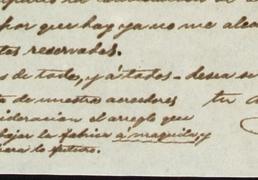 por que hay ya no me alca
tos reservados.
s de todos, y á todos - desea se
ta de nuestro acreedores tu a
sideracion el arreglo que
bajar la fabrica á maquila, y
para lo futuro.